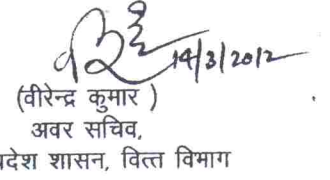 14/3/2012
(वीरेन्द्र कुमार )
अवर सचिव,
प्रदेश शासन, वित्त विभाग